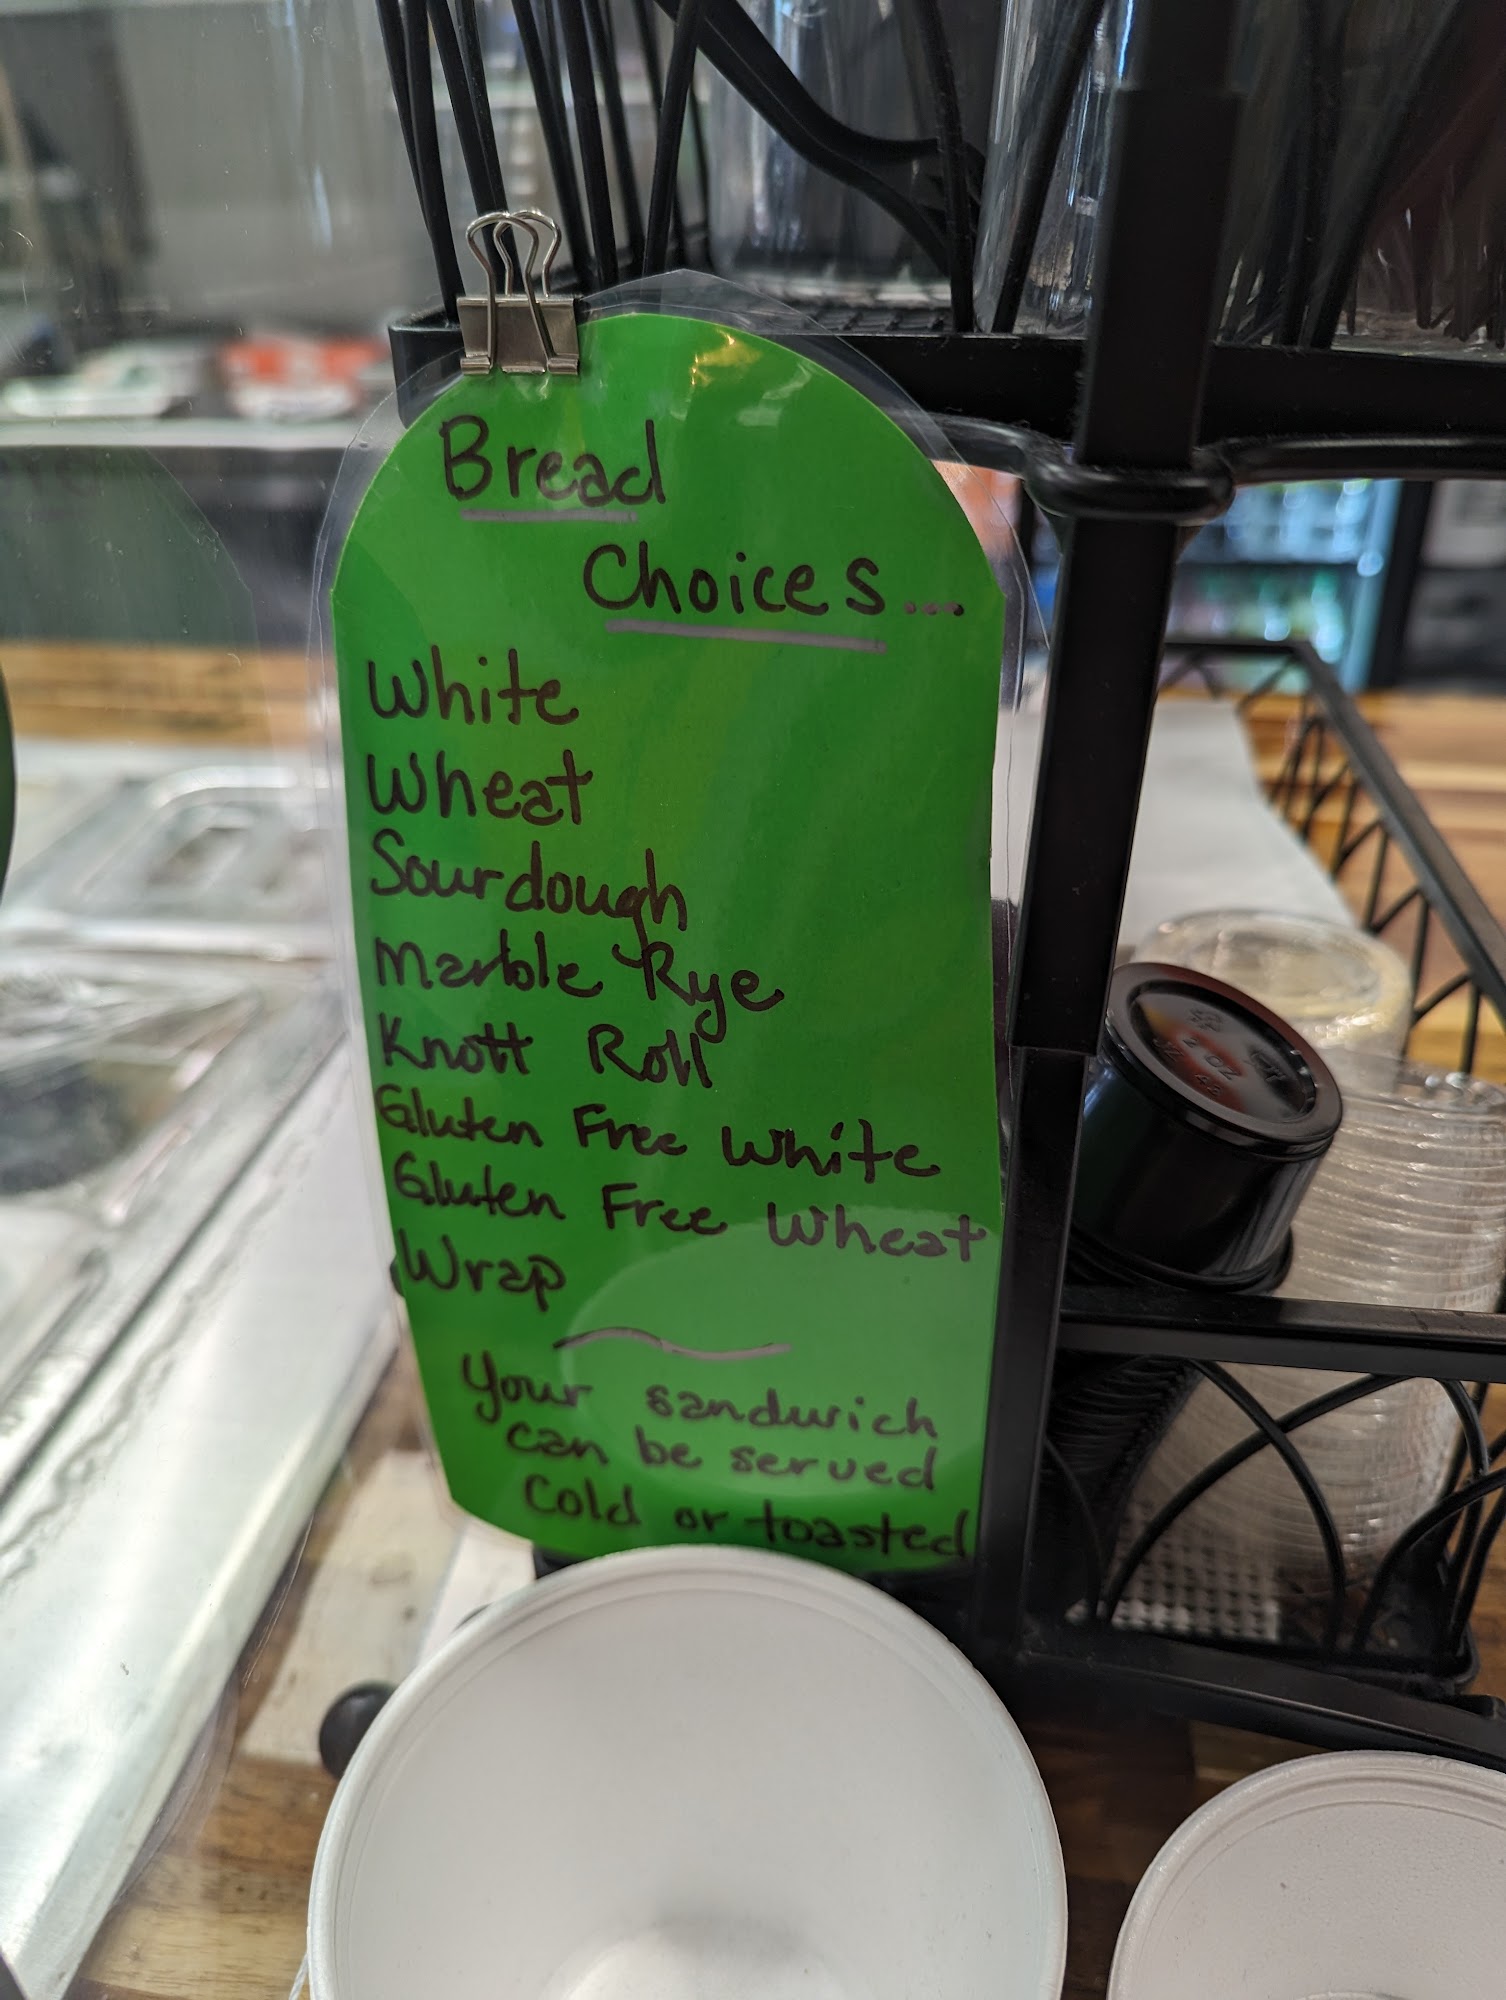 Bread
Choices...
White
Wheat
Sourdough
Marble Rye
Knott Roll
Gluten Free White
Gluten Free Wheat
Wrap
Your sandwich
can be served
Cold or toasted